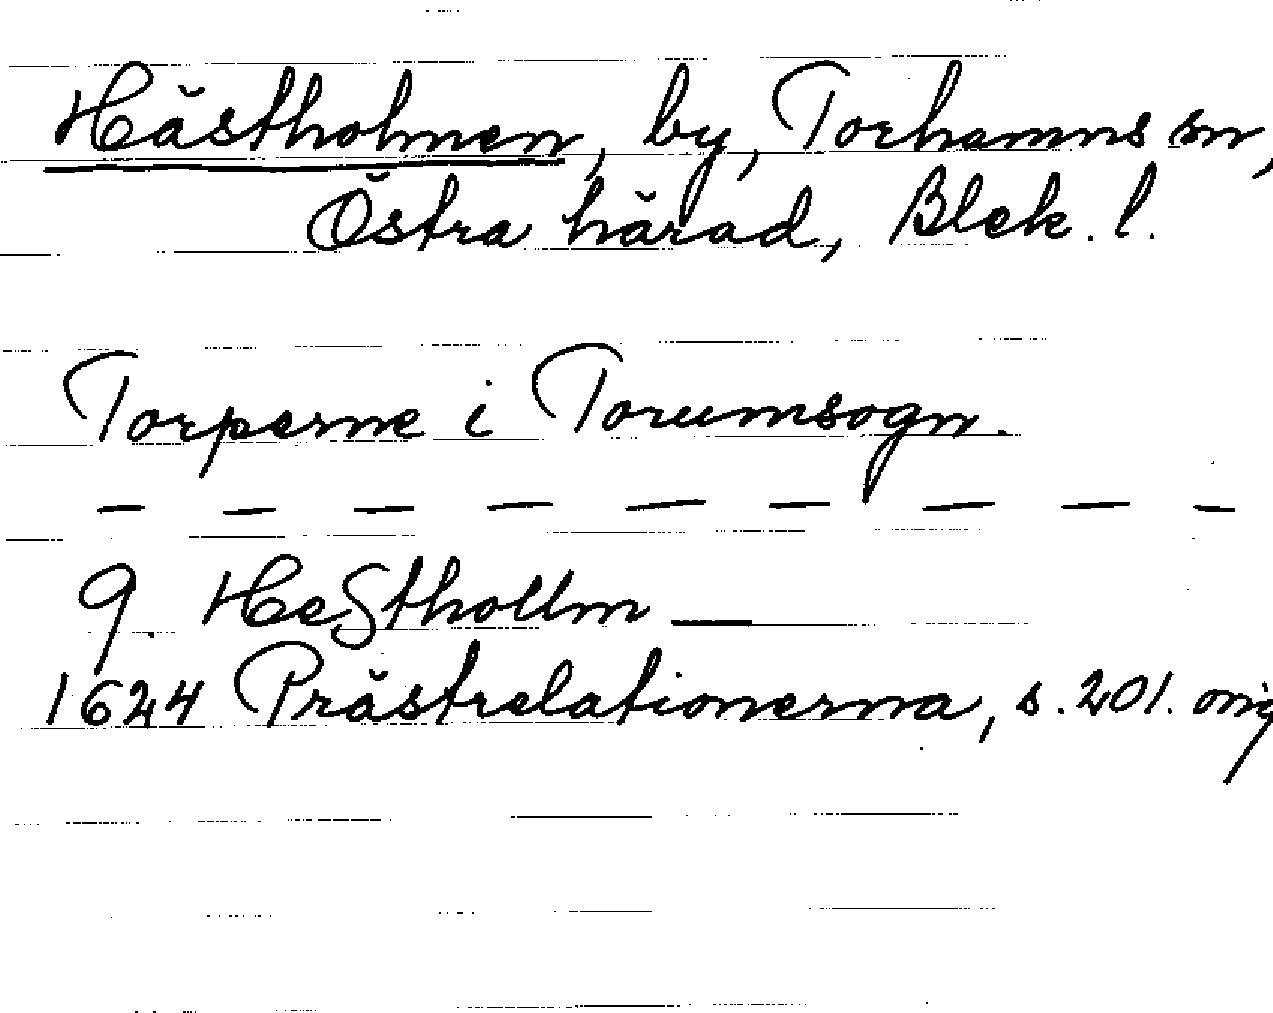 Hästholmen, by, Torhamns sn,
Östra härad, Blek. l.
Torperne i Torumsogn.
— — — — — — — — —
9. Hesthollm —
1624 Prästrelationerna, s. 201. orig